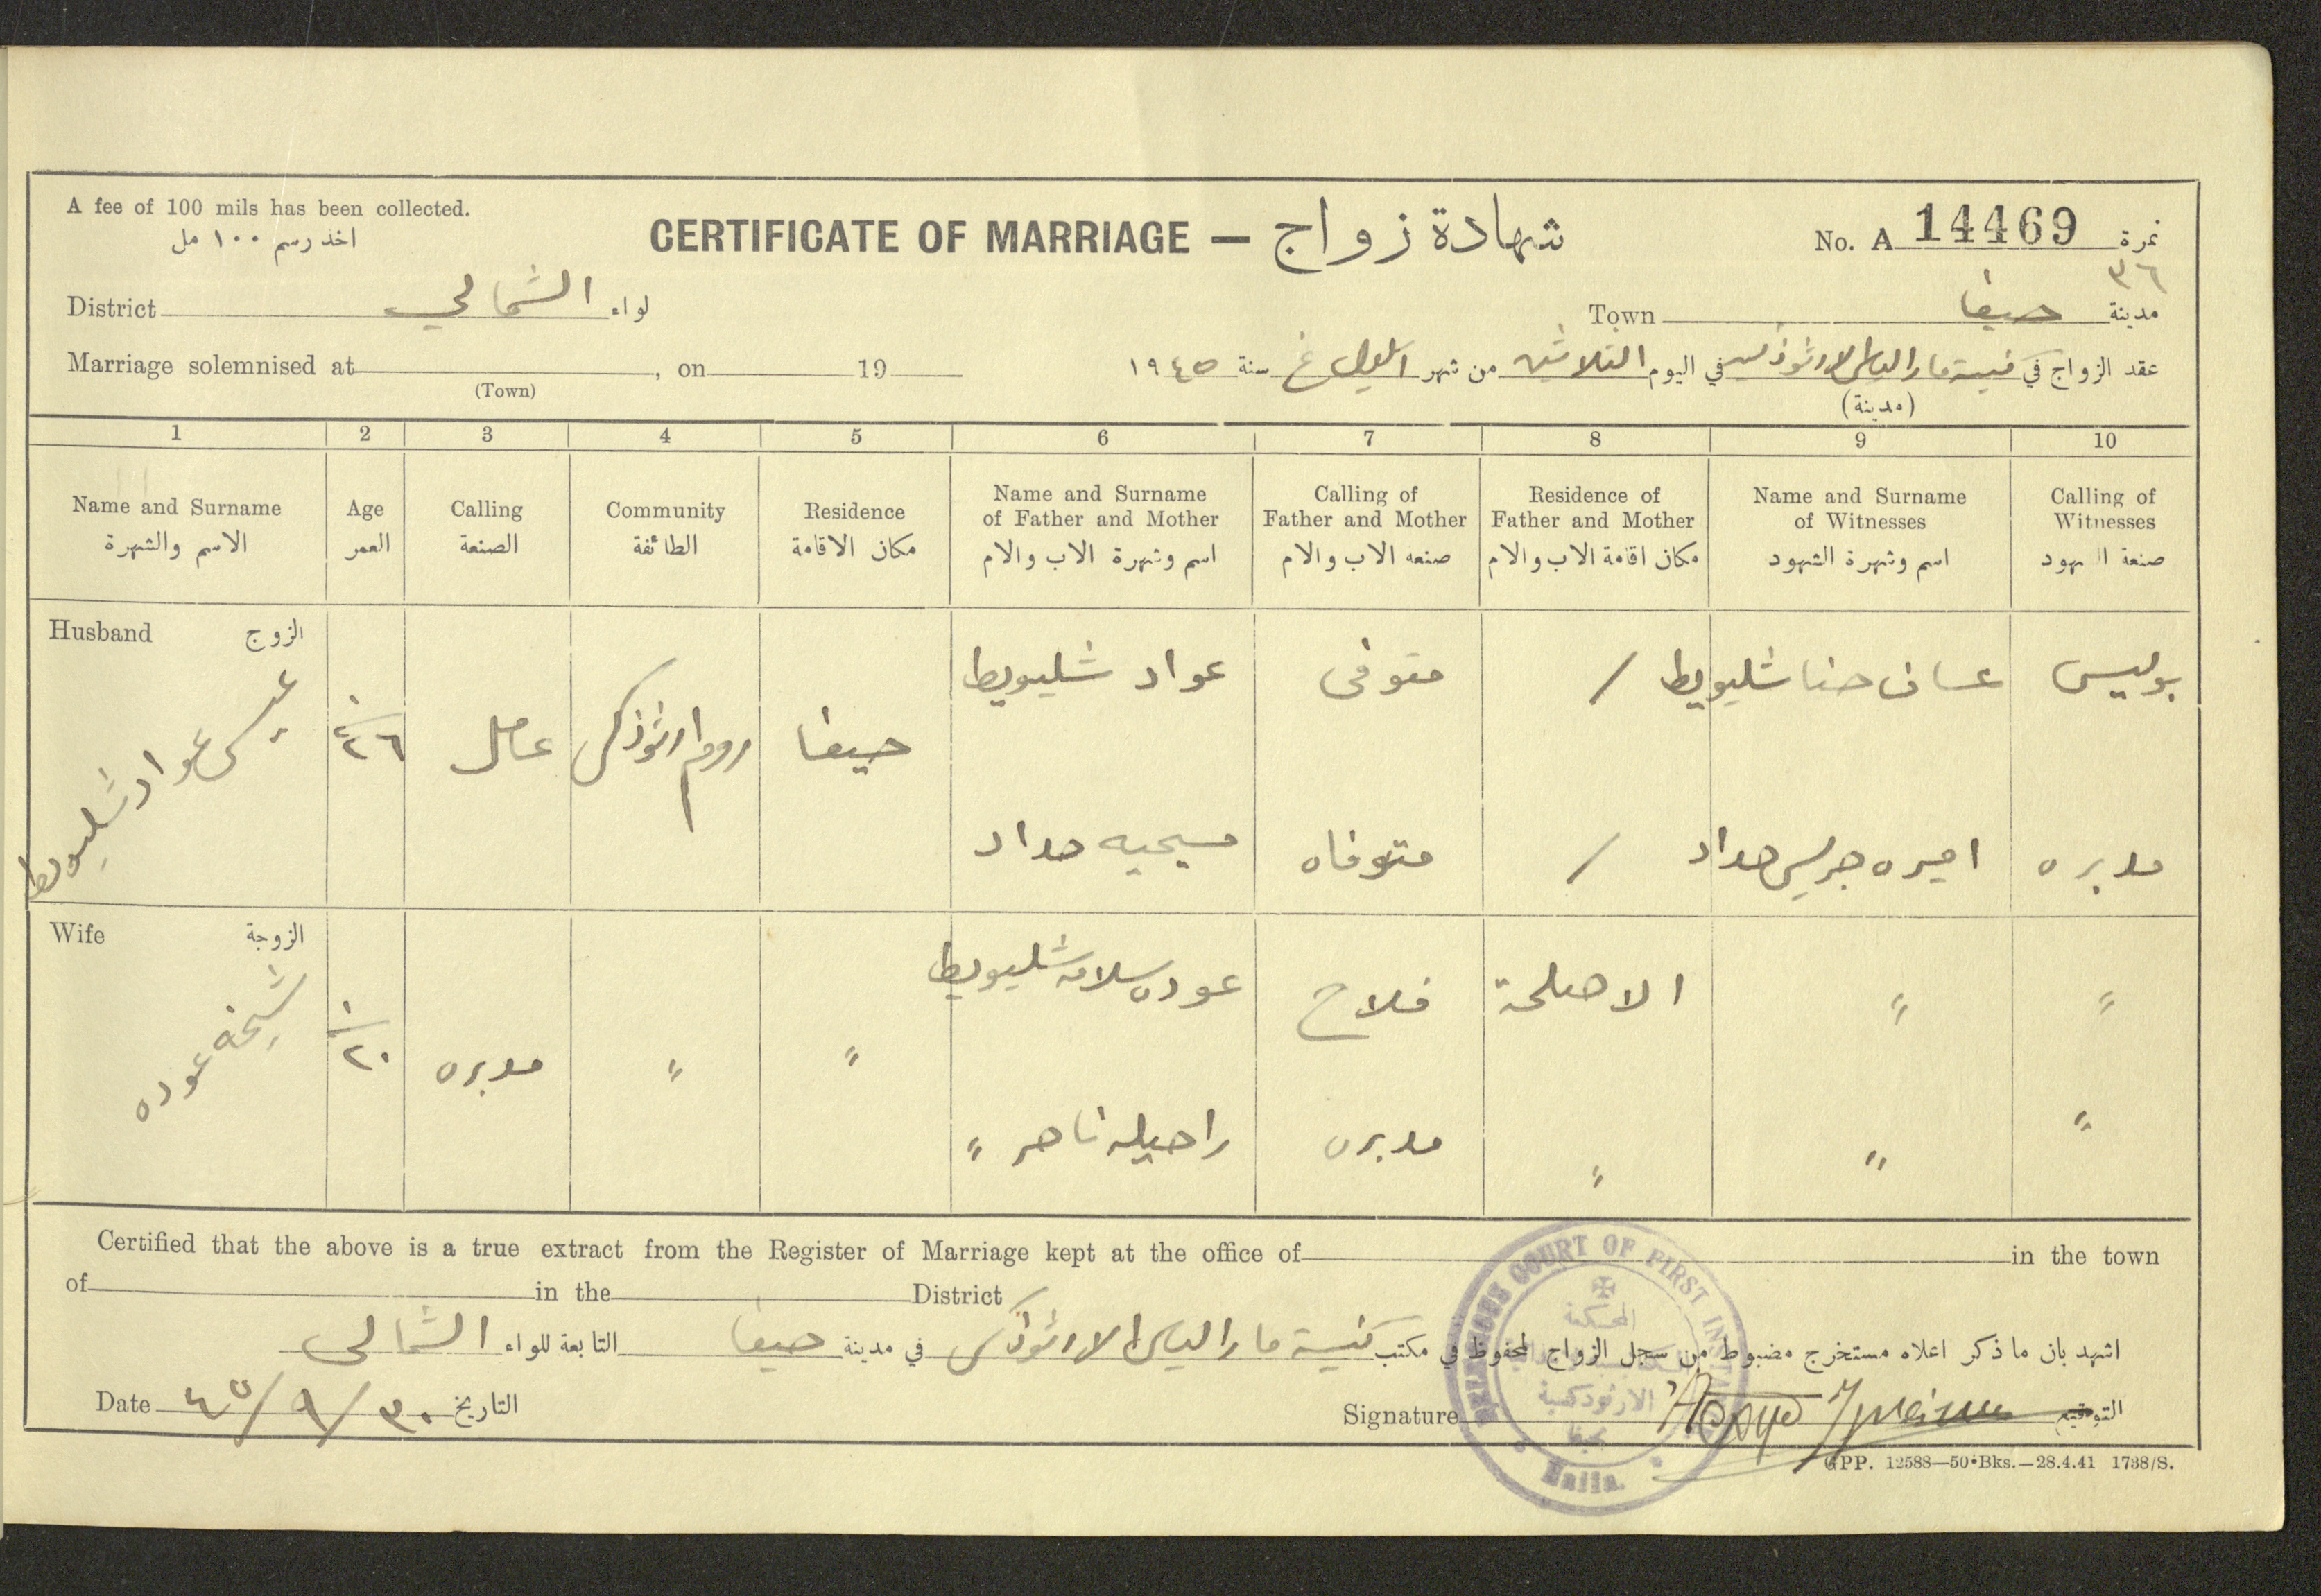 A fee of 100 mils has been collected.
اخذ رسم ١٠٠ مل
CERTIFICATE OF MARRIAGE — شهادة زواج
No. A 14469 نمرة
٣٦
District الشمالي لواء
Town حيفا مدينة
Marriage solemnised at , on 19
(Town)
عقد الزواج في كنيسة مار الياس الارثوذكسية في اليوم الثلاثين من شهر ايلول غ سنة ١٩٤٥
(مدينة)
1 2 3 4 5 6 7 8 9 10
Name and Surname
الاسم والشهرة
Age
العمر
Calling
الصنعة
Community
الطائفة
Residence
مكان الاقامة
Name and Surname
of Father and Mother
اسم وشهرة الاب والام
Calling of
Father and Mother
صنعه الاب والام
Residence of
Father and Mother
مكان اقامة الاب والام
Name and Surname
of Witnesses
اسم وشهرة الشهود
Calling of
Witnesses
صنعة الشهود
Husband الزوج
عيسى عواد شليويط
٢٦
عامل
روم ارثوذكس
حيفا
عواد شليويط
متوفى
/
حنا شليويط
بوليس
مسيحيه حداد
متوفاه
/
اميره جريس حداد
مدبره
Wife الزوجة
شيخه عوده
٢٠
مدبره
"
"
عوده سلامه شليويط
فلاح
"
"
راحيله "
مدبره
"
"
"
Certified that the above is a true extract from the Register of Marriage kept at the office of in the town
of in the District
اشهد بان ما ذكر اعلاه مستخرج مضبوط من سجل الزواج المحفوظ في مكتب كنيسة مار الياس الارثوذكس في مدينة حيفا التابعة للواء الشمالي
Date ٣٠/٩/٤٥ التاريخ
Signature التوقيع
RELIGIOUS COURT OF FIRST INSTANCE
المحكمة
الارثوذكسية
بحيفا
Haifa.
GPP. 12588—50 Bks.—28.4.41 1738/S.